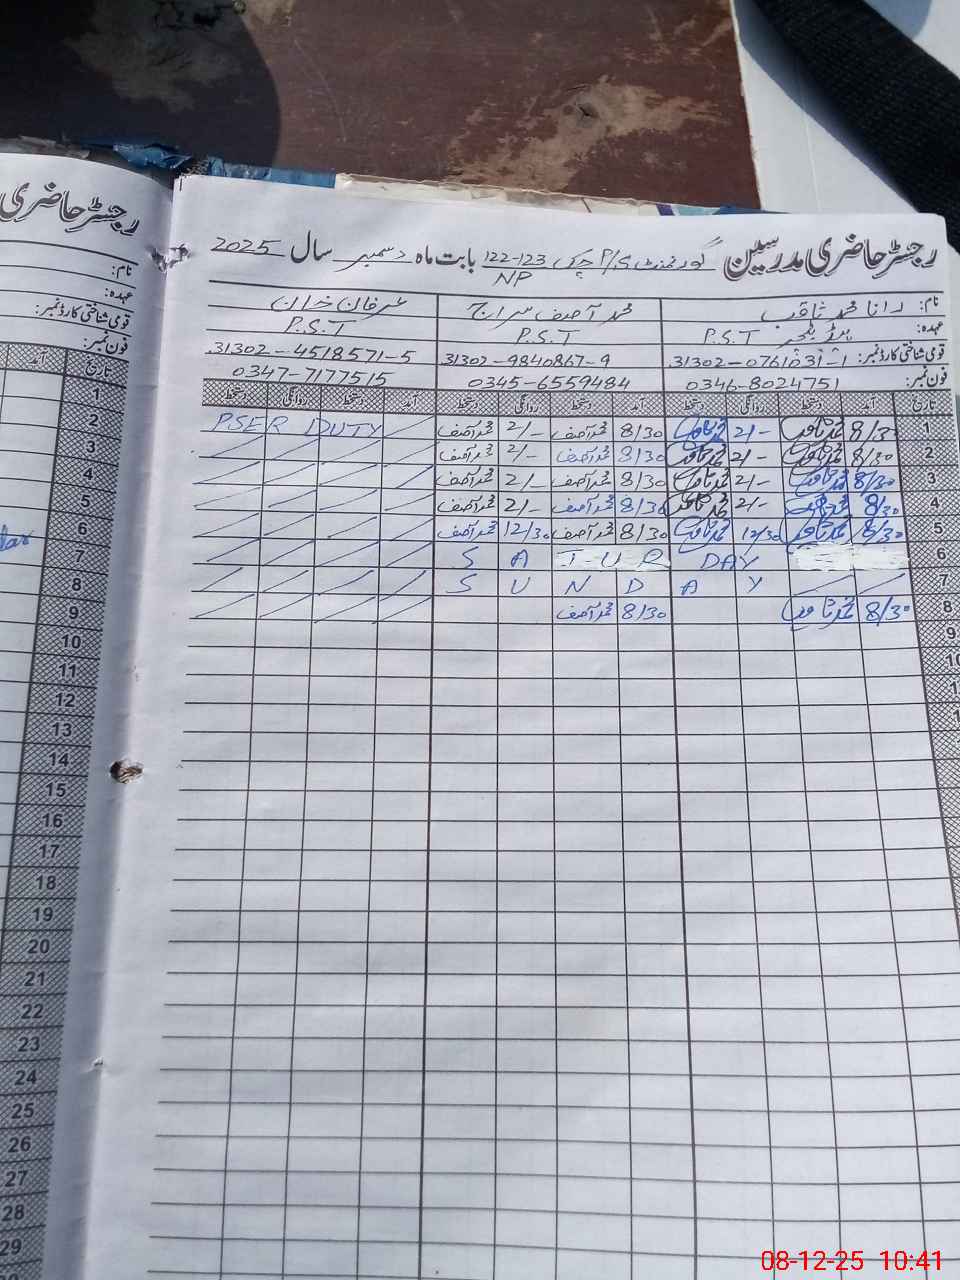 رجسٹر حاضری
نام:
عہدہ:
قومی شناختی کارڈ نمبر:
فون نمبر:
تاریخ آمد
1
2
3
4
5
6
7
8
9
10
11
12
13
14
15
16
17
18
19
20
21
22
23
24
25
26
27
28
29
رجسٹر حاضری مدرسین گورنمنٹ P/S چک 122-123 NP بابت ماہ دسمبر سال 2025
نام: رانا محمد ثاقب محمد آصف سراج عرفان خان
عہدہ: ہیڈ ٹیچر P.S.T P.S.T P.S.T
قومی شناختی کارڈ نمبر: 31302-0761031-1 31302-9840867-9 31302-4518571-5
فون نمبر: 0346-8024751 0345-6559484 0347-7177515
تاریخ آمد دستخط روانگی دستخط آمد دستخط روانگی دستخط آمد دستخط روانگی دستخط
1 8/30 محمد ثاقب 2/- محمد ثاقب 8/30 محمد آصف 2/- محمد آصف PSER DUTY
2 8/30 محمد ثاقب 2/- محمد ثاقب 8/30 محمد آصف 2/- محمد آصف
3 8/30 محمد ثاقب 2/- محمد ثاقب 8/30 محمد آصف 2/- محمد آصف
4 8/30 محمد ثاقب 2/- محمد ثاقب 8/30 محمد آصف 2/- محمد آصف
5 8/30 محمد ثاقب 12/30 محمد ثاقب 8/30 محمد آصف 12/30 محمد آصف
6 SATURDAY
7 SUNDAY
8 8/30 محمد ثاقب 8/30 محمد آصف
9
10
08-12-25 10:41